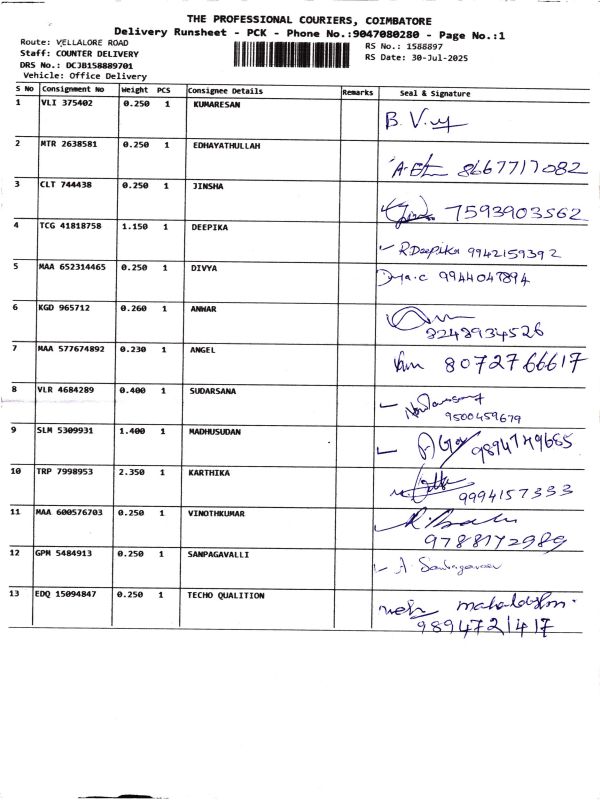 THE PROFESSIONAL COURIERS, COIMBATORE
Delivery Runsheet - PCK - Phone No.:9047080280 - Page No.:1
Route: VELLALORE ROAD
Staff: COUNTER DELIVERY
DRS No.: DCJB158889701
Vehicle: Office Delivery
RS No.: 1588897
RS Date: 30-Jul-2025
S No Consignment No Weight PCS Consignee Details Remarks Seal & Signature
1 VLI 375402 0.250 1 KUMARESAN
2 MTR 2638581 0.250 1 EDHAYATHULLAH
8667717082
3 CLT 744438 0.250 1 JINSHA
7593903562
4 TCG 41818758 1.150 1 DEEPIKA
R.Deepika 9942159392
5 MAA 652314465 0.250 1 DIVYA
Divya.c 9944047894
6 KGD 965712 0.260 1 ANWAR
8248934526
7 MAA 577674892 0.230 1 ANGEL
8072766617
8 VLR 4684289 0.400 1 SUDARSANA
9500459679
9 SLM 5309931 1.400 1 MADHUSUDAN
9894749685
10 TRP 7998953 2.350 1 KARTHIKA
9994157333
11 MAA 600576703 0.250 1 VINOTHKUMAR
9788172989
12 GPM 5484913 0.250 1 SANPAGAVALLI
13 EDQ 15094847 0.250 1 TECHO QUALITION
9894721417